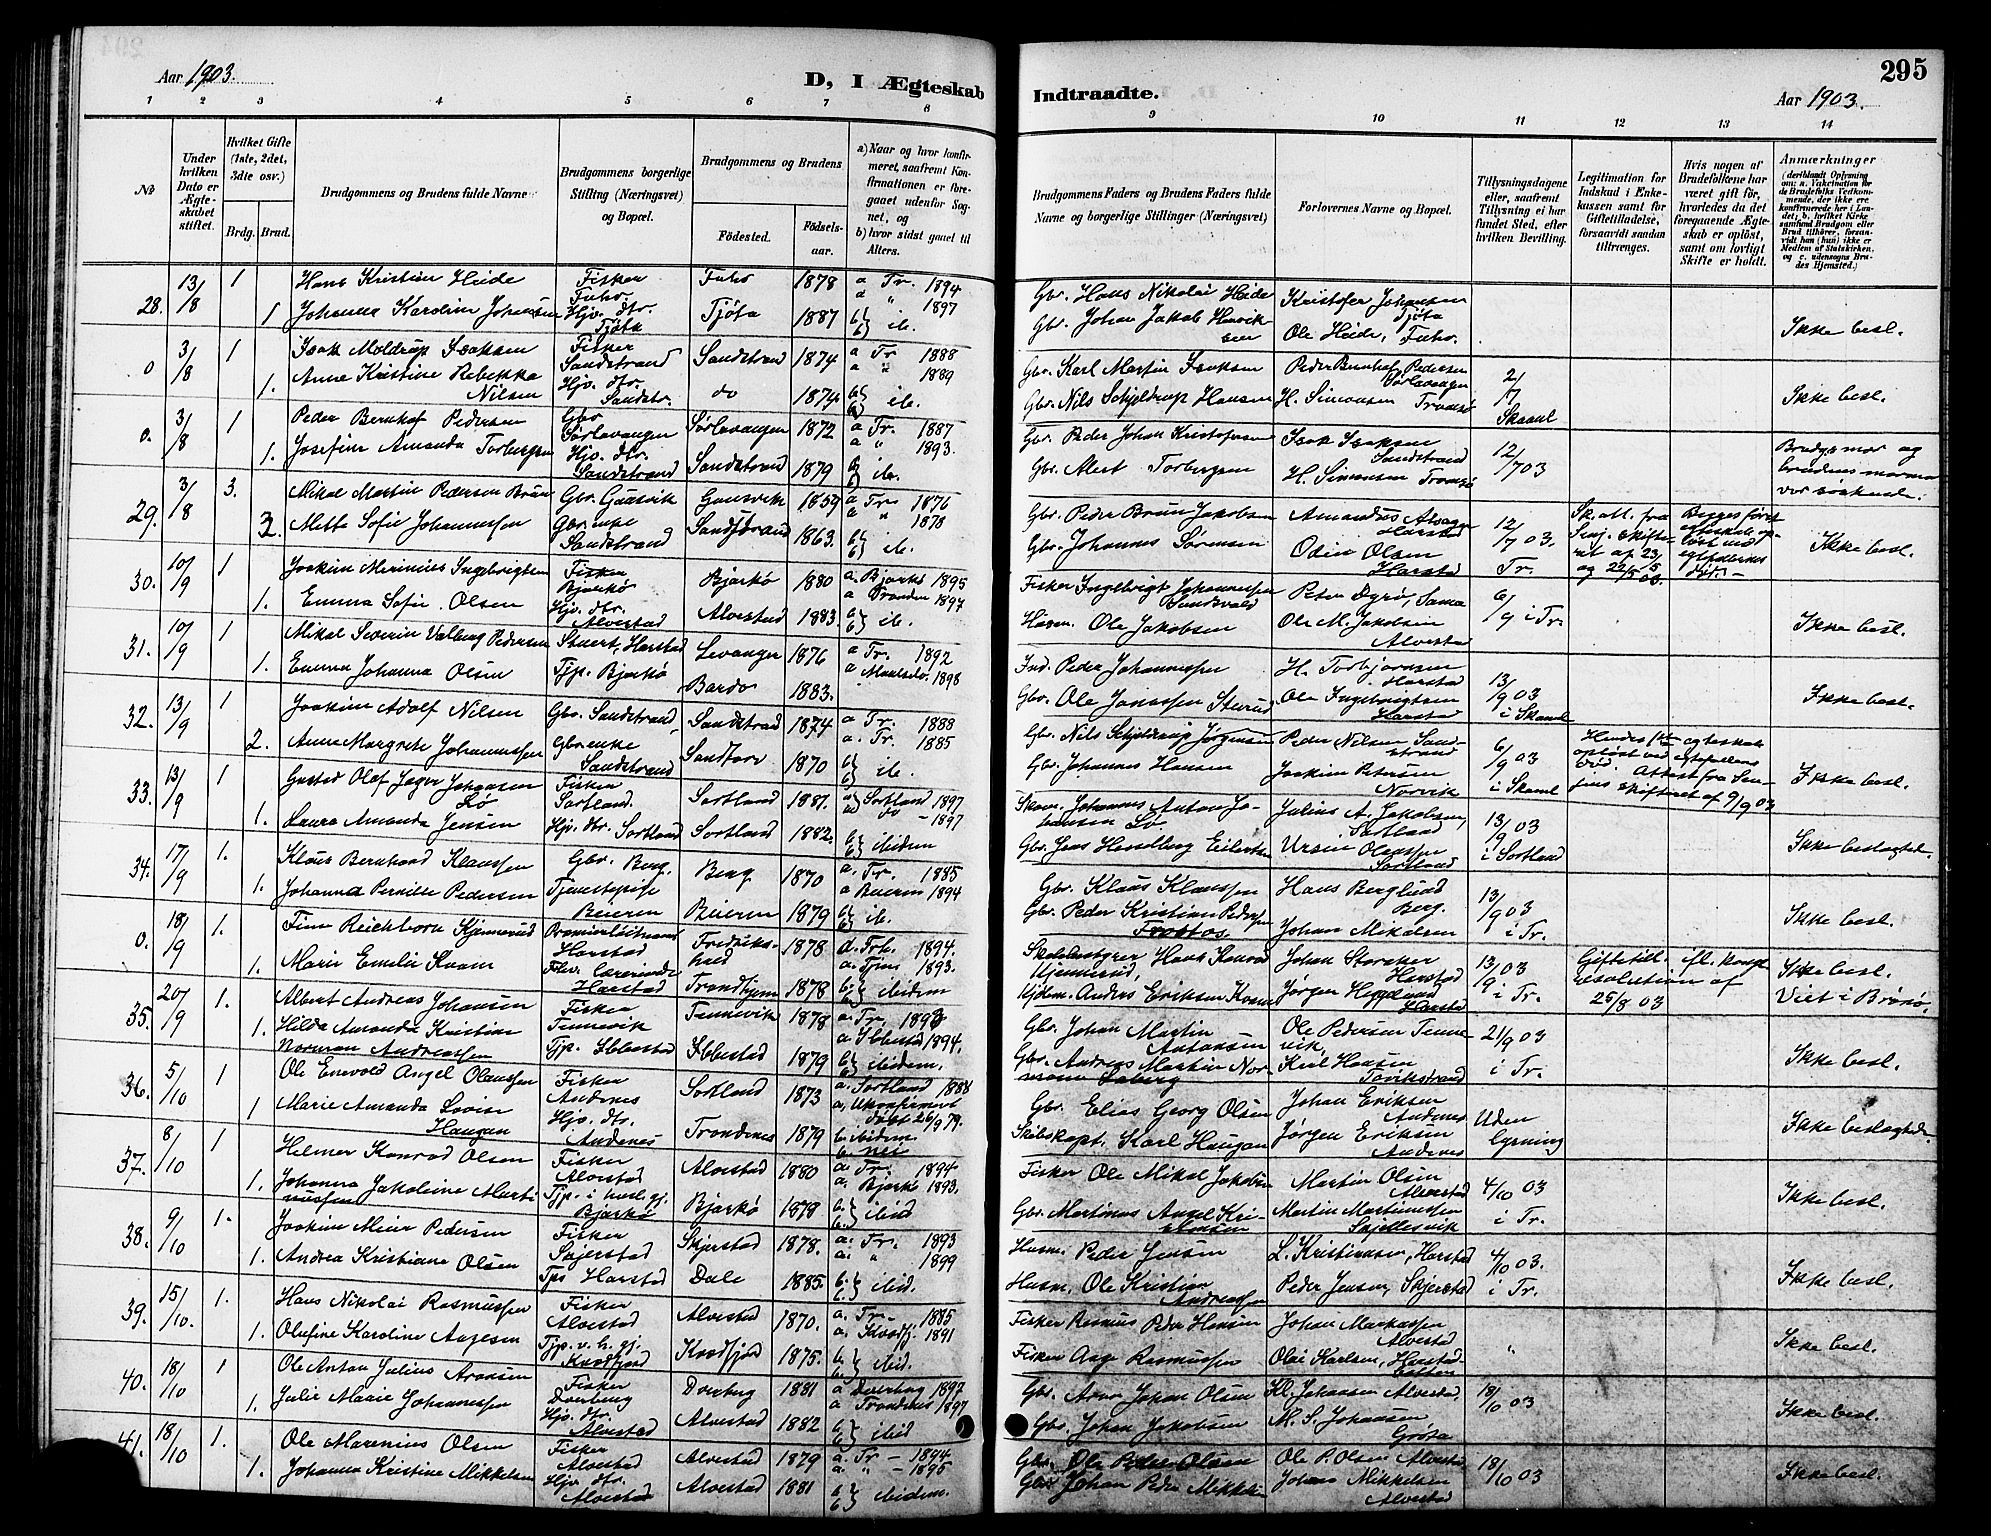 Aar 1903.
D, I Ægteskab
1 2 3 4 5 6 7 8
No
Under hvilken Dato er Ægteskabet stiftet.
Hvilket Gifte (1ste, 2det, 3die osv.)
Brdg. Brud.
Brudgommens og Brudens fulde Navne
Brudgommens borgerlige Stilling (Næringsvei) og Bopæl.
Brudgommens og Brudens
Fødested. Fødselsaar.
a) Naar og hvor konfirmeret, saafremt Konfirmationen er foregaaet udenfor Sognet, og
b) hvor sidst gaaet til Alters.
28. 13/8 1 Hans Kristian Heide Fisker 1878 a Tr. 1894
1 Johanna Karoline Johansen Hjv. dtr. Tjøta Tjøta 1887 a " 1897 ib.
0 3/8 1 Isak Moldrup Isaksen Fisker Sandstrand Sandstrand 1874 a Tr 1888
1. Anne Kristine Rebekka Nilsen Hjv. dtr. Sandstr. do 1874 a " 1889 ib.
0. 3/8 1 Peder Bernhof Pedersen Gbr Sørlavangen Sørlavangen 1872 a Tr. 1887
1. Josefine Amanda Hjv. dtr. Sandstrand Sandstrand 1879 a " 1893. ib.
29. 3/8 3. Mikal Martin Pedersen Brun Gbr. Gausvik Gausvik 1859 a Tr. 1876
2. Mette Sofie Johannessen Gbr. enke Sandstrand 1863. a " 1878 ib.
30. 10/9 1 Joakim Merinius Ingebrigtsen Fisker Bjarkø Bjarkø 1880 a. Bjarkø 1895
1. Emma Sofie Olsen Hjv. dtr. Alvestad Alvestad 1883 a Tranden 1897 ib.
31. 10/9 1 Mikal Severin Valberg Pedersen Stuert, Harstad Levanger 1876 a Tr. 1892
1. Emma Johanna Olsen Tjp. Bjarkø Bardo 1883. a Maalselv. 1898
32. 13/9 1 Joakim Adolf Nilsen Gbr. Sandstrand Sandstrad 1874 a Tr. 1888
2. Anne Margrete Johannessen Gbr. enke Sandstrand Sandtorv 1870 a. Tr. 1885 ib.
33. 13/9 1 Gustad Olaf Jager Johansen Lø Fisker Sortland. Sortland 1881. a Sortland 1897
1. Laura Amanda Jensen Hjv. dtr. Sortland Sortland 1882. a do - 1897 ibidem
34. 17/9 1. Klaus Bernhard Klaussen Gbr. Berg. Berg 1870 a. Tr. 1885
1. Johanna Pernille Pedersen Tjenestepige Beieren Beieren 1879 a Beieren 1894 ib.
0. 18/9 1. Finn Reichborn Kjennerud Premierløitnant Harstad Fredrikshald 1878 a. Frh. 1894.
1. Marie Emilie Kvam Fhv. lærerinde Harstad Trondhjem 1878 a. Tjm 1893. ibidem
35. 20/9 1. Albert Andreas Johansen Fisker Tennevik Tennevik 1878 a. Tr. 1893
1. Hilda Amanda Kristine Norman Andreassen Tjp. Ibbestad Ibbestad 1879 a Ibbestad 1894. ibidem.
36. 5/10 1 Ole Enevold Angel Olaussen Fisker Andenes Sortland 1873 a. Sortland 1888
1 Marie Amanda Lovise Haugan Hjv. dtr. Andenes Trondenes 1879 a. Ukonfirmert døbt 26/9 79. b. ibidem. b. nei
37. 8/10 1 Helmer Konrad Olsen Fisker Alvestad Alvestad 1880 a. Tr. 1894
1. Johanna Jakobine Martinussen Tjp. i husl. gj. Bjarkø Bjarkø 1878 a. Bjarkø 1893. ibid
38. 9/10 1. Joakim Meier Pedersen Fisker Skjerstad Skjerstad 1878. a. Tr. 1893
1. Andrea Kristiane Olsen Tps Harstad Dale 1885. a. " 1899 ibid.
39. 15/10. 1. Hans Nikolai Rasmussen Fisker Alvestad Alvestad 1870. a. Tr. 1885
1. Olufine Karoline Aagesen Tjp. v. h. gj. Kvæfjord Kvæfjord 1875. a. Kvæfj. 1891 ibid.
40. 18/10 1 Ole Anton Julius Aronsen Fisker Dverberg Dverberg 1881 a Dverberg 1897
1. Julie Marie Johannessen Hjv. dtr. Alvestad Alvestad 1882 a Trondenes 1897 ibid
41. 18/10 1. Ole Marenius Olsen Fisker Alvestad Alvestad 1879 a. Tr - 1894
1. Johanna Kristine Mikkelsen Hjv. dtr. Alvestad Alvestad 1881 a. " - 1895 ibidem.
295
Indtraadte.
Aar 1903.
9 10 11 12 13 14
Brudgommens Faders og Brudens Faders fulde Navne og borgerlige Stillinger (Næringsvei)
Forlovernes Navne og Bopæl.
Tillysningsdagene eller, saafremt Tillysning ei har fundet Sted, efter hvilken Bevilling.
Legitimation for Indskud i Enkekassen samt for Giftetilladelse, forsaavidt saadan tiltrænges.
Hvis nogen af Brudefolkene har været gift før, hvorledes da det foregaaende Ægteskab er opløst, samt om lovligt Skifte er holdt.
Anmærkninger (deriblandt Oplysning om: a. Vakcination for de Brudefolks Vedkommende, der ikke ere konfirmerede her i Landet; b. hvilket Kirkesamfund Brudgom eller Brud tilhører, forsaavidt han (hun) ikke er Medlem af Statskirken, og c. udensogns Brudes Hjemsted.)
Gbr. Hans Nikolai Heide Kristofer Johansen Tjøta
Gbr. Johan Jakob Henriksen Ole Heide, Ikke besl.
Gbr. Karl Martin Isaksen Peder Bernhof Pedersen Sørlavangen 2/7
Gbr. Nils Schjeldrup Hansen H. Simonsen Tromsø Skaanl Ikke besl.
Gbr. Peder Johan Kristofersen Isak Isaksen Sandstrand 12/7 03
Gbr. Mert Torbergsen H. Simonsen Tromsø Brudgs mor og brudens mormor var søskende.
Gbr. Peder Brun Jakobsen Amandus Harstad 12/7 03.
Gbr. Johannes Sørensen Odin Olsen Harstad Tr. Sk. att. fra Senj. skifteret af 23/5 og 22/5 03. Ikke besl.
Fisker Ingebrigt Johannessen Sundsvald Peter Dyrø, Sama 6/9 i Tr.
Husm. Ole Jakobsen Ole M. Jakobsen Alvestad Ikke besl.
Ind. Peder Johannessen H. Torbjørnsen Harstad 13/9 03
Gbr. Ole Jonssen Ole Ingebrigtsen Harstad i Skaanl Ikke besl.
Gbr. Nils Schjeldrup Jørgensen Peder Nilsen Sandstrand 6/9 03
Gbr. Johannes Hansen Joakim Petersen Norvik i Skaanl Hendes 1ste egteskab opløst ved egtefellens død. Attest fra Senjens skifteret af 9/9 03 Ikke besl.
Johannes Anton Johansen Lø. Julius A. Jakobsen, Sortland 13/9 03
Gbr. Jens Hevelberg Eilertsen Ursin Olaussen Sortland i Sortland Ikke beslagtede.
Gbr. Klaus Klaussen Hans Berglund Berg. 13/9 03
Gbr. Peder Kristian Pedersen Johan Mikalsen i Tr. Ikke besl.
Skolebestyrer, Hans Konrad Kjennerud, Johan Storaker Harstad 13/9 03 Giftetill. efl. kongl resolution af 25/8 03
Kjøbm. Anders Eriksen Kvam Jørgen Harstad i Tr. Ikke besl. Viet i Brønø.
Gbr. Johan Martin Antonsen Ole Pedersen Tennevik, 21/9 03
Gbr. Andreas Martin Normann Karl Hansen i Tr. Ikke besl.
Gbr. Elias Georg Olsen Johan Eriksen Andenes Uden lysning
Skibskapt. Karl Haugan Jørgen Eriksen Andenes Ikke beslagtede.
Fisker Ole Mikal Jakobsen Martin Olsen Alvestad 4/10 03
Gbr. Martinus Angel Kristensen Martin Martinussen Skjellesvik i Tr. Ikke besl.
Husm. Peder Jensen L. Kristiansen, Harstad 4/10 03.
Husm. Ole Kristian Andreassen Peder Jensen, Skjerstad i Tr. Ikke besl.
Fisker Rasmus Peder Hansen Johan Markussen Alvestad
Fisker Aage Rasmussen Olai Karlsen, Harstadbotten " Ikke besl.
Gbr. Aron Johan Olsen Kl. Johansen Alvestad, 18/10 03
Gbr. Johan Jakobsen M. S. Johansen Grøsa Ikke besl.
Gbr. Ole Peder Olsen Ole P. Olsen Alvestad 18/10 03
Gbr. Johan Peder Mikkelsen Johans Mikkelsen Alvestad Ikke besl.